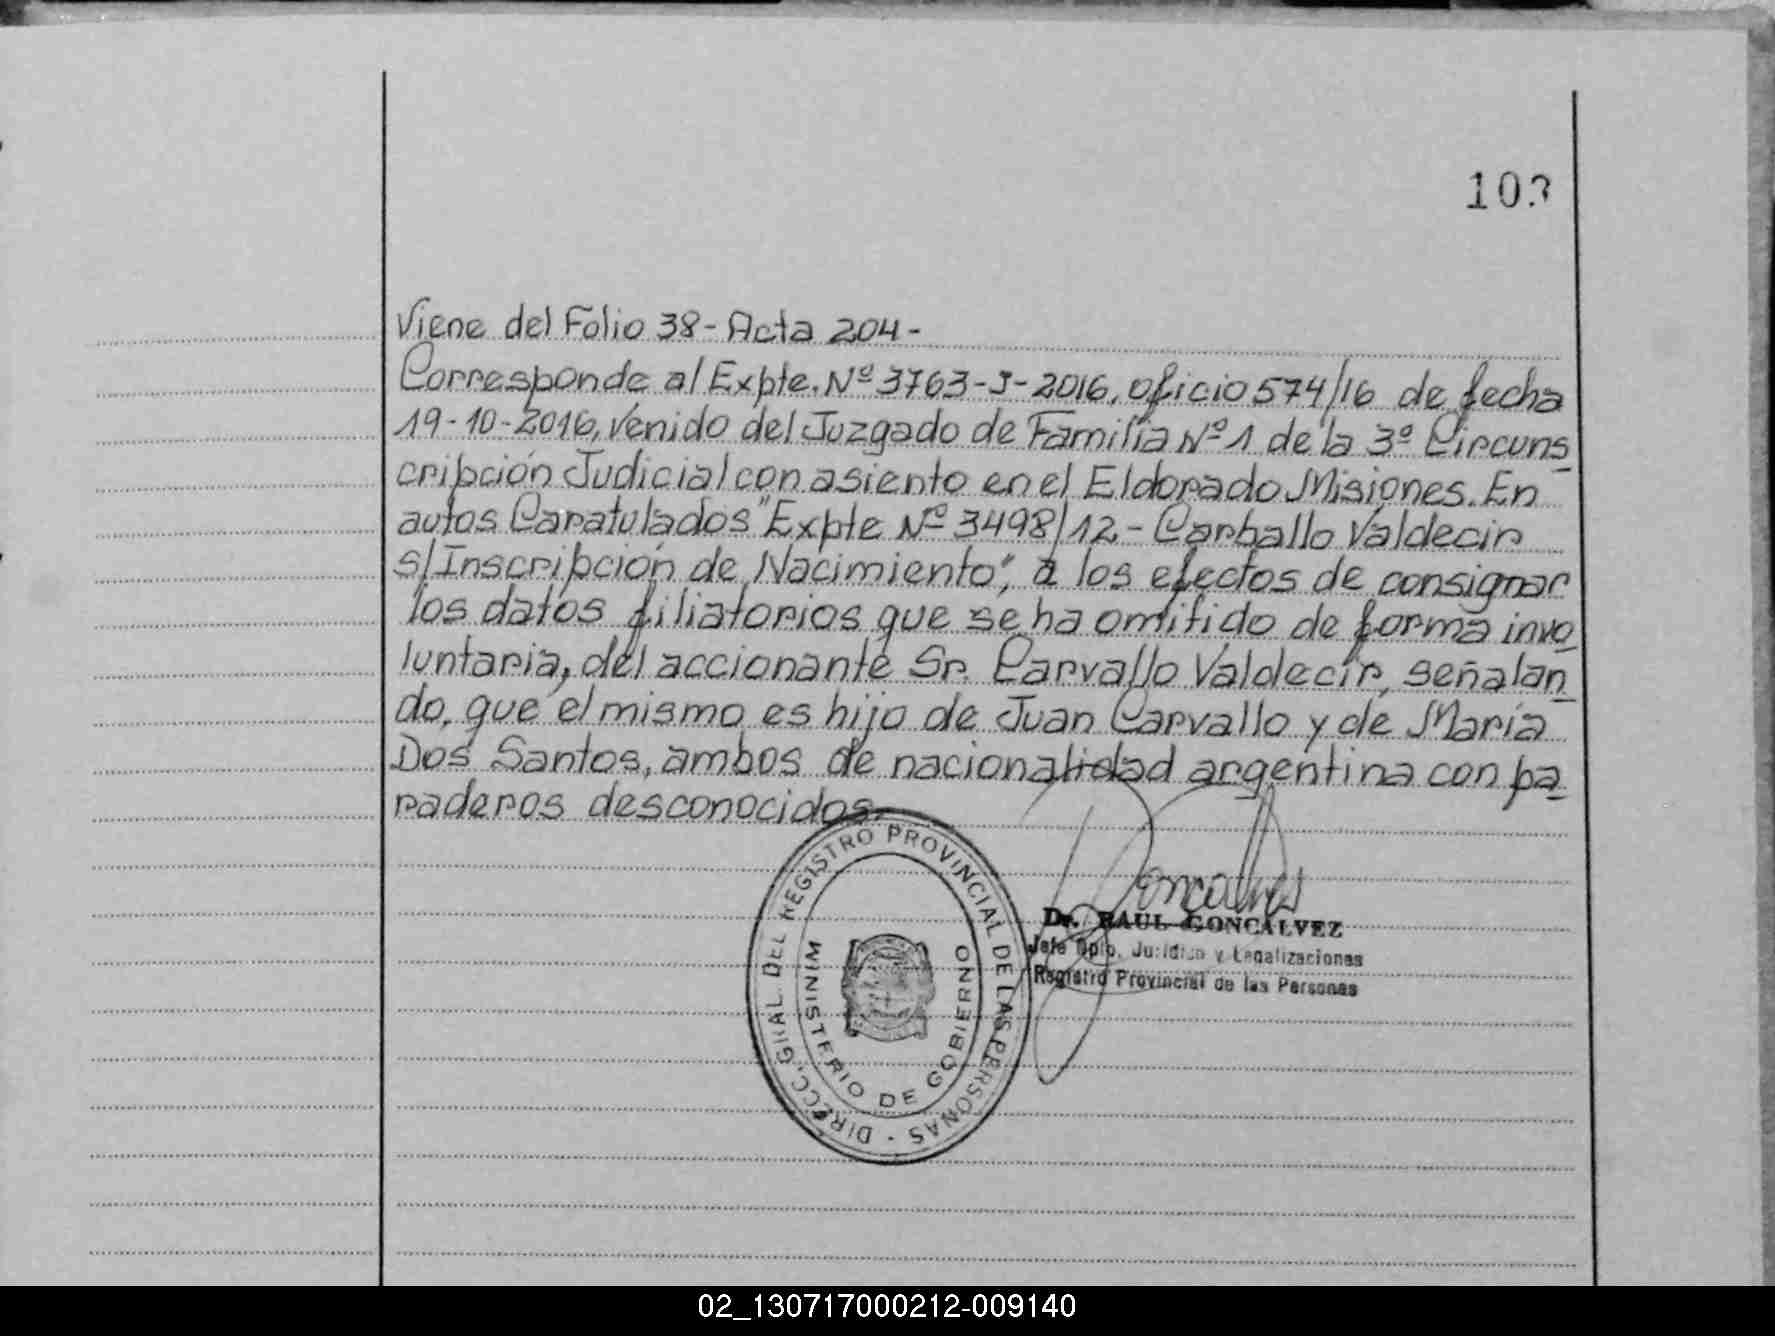 103
Viene del Folio 38 - Acta 204 -
Corresponde al Expte. Nº 3763-J-2016, oficio 574/16 de fecha
19-10-2016, venido del Juzgado de Familia Nº 1 de la 3º Circuns
cripción Judicial con asiento en el Eldorado Misiones. En
autos Caratulados "Expte Nº 3498/12 - Carballo Valdecir
s/Inscripción de Nacimiento", a los efectos de consignar
los datos filiatorios que se ha omitido de forma invo
luntaria, del accionante Sr. Carvallo Valdecir, señalan
do, que el mismo es hijo de Juan Carvallo y de María
Dos Santos, ambos de nacionalidad argentina con pa
raderos desconocidos.
DIRECC. GRAL. DEL REGISTRO PROVINCIAL DE LAS PERSONAS -
MINISTERIO DE GOBIERNO
Dr. RAUL GONCALVEZ
Jefe Dpto. Jurídico y Legalizaciones
Registro Provincial de las Personas
02_130717000212-009140